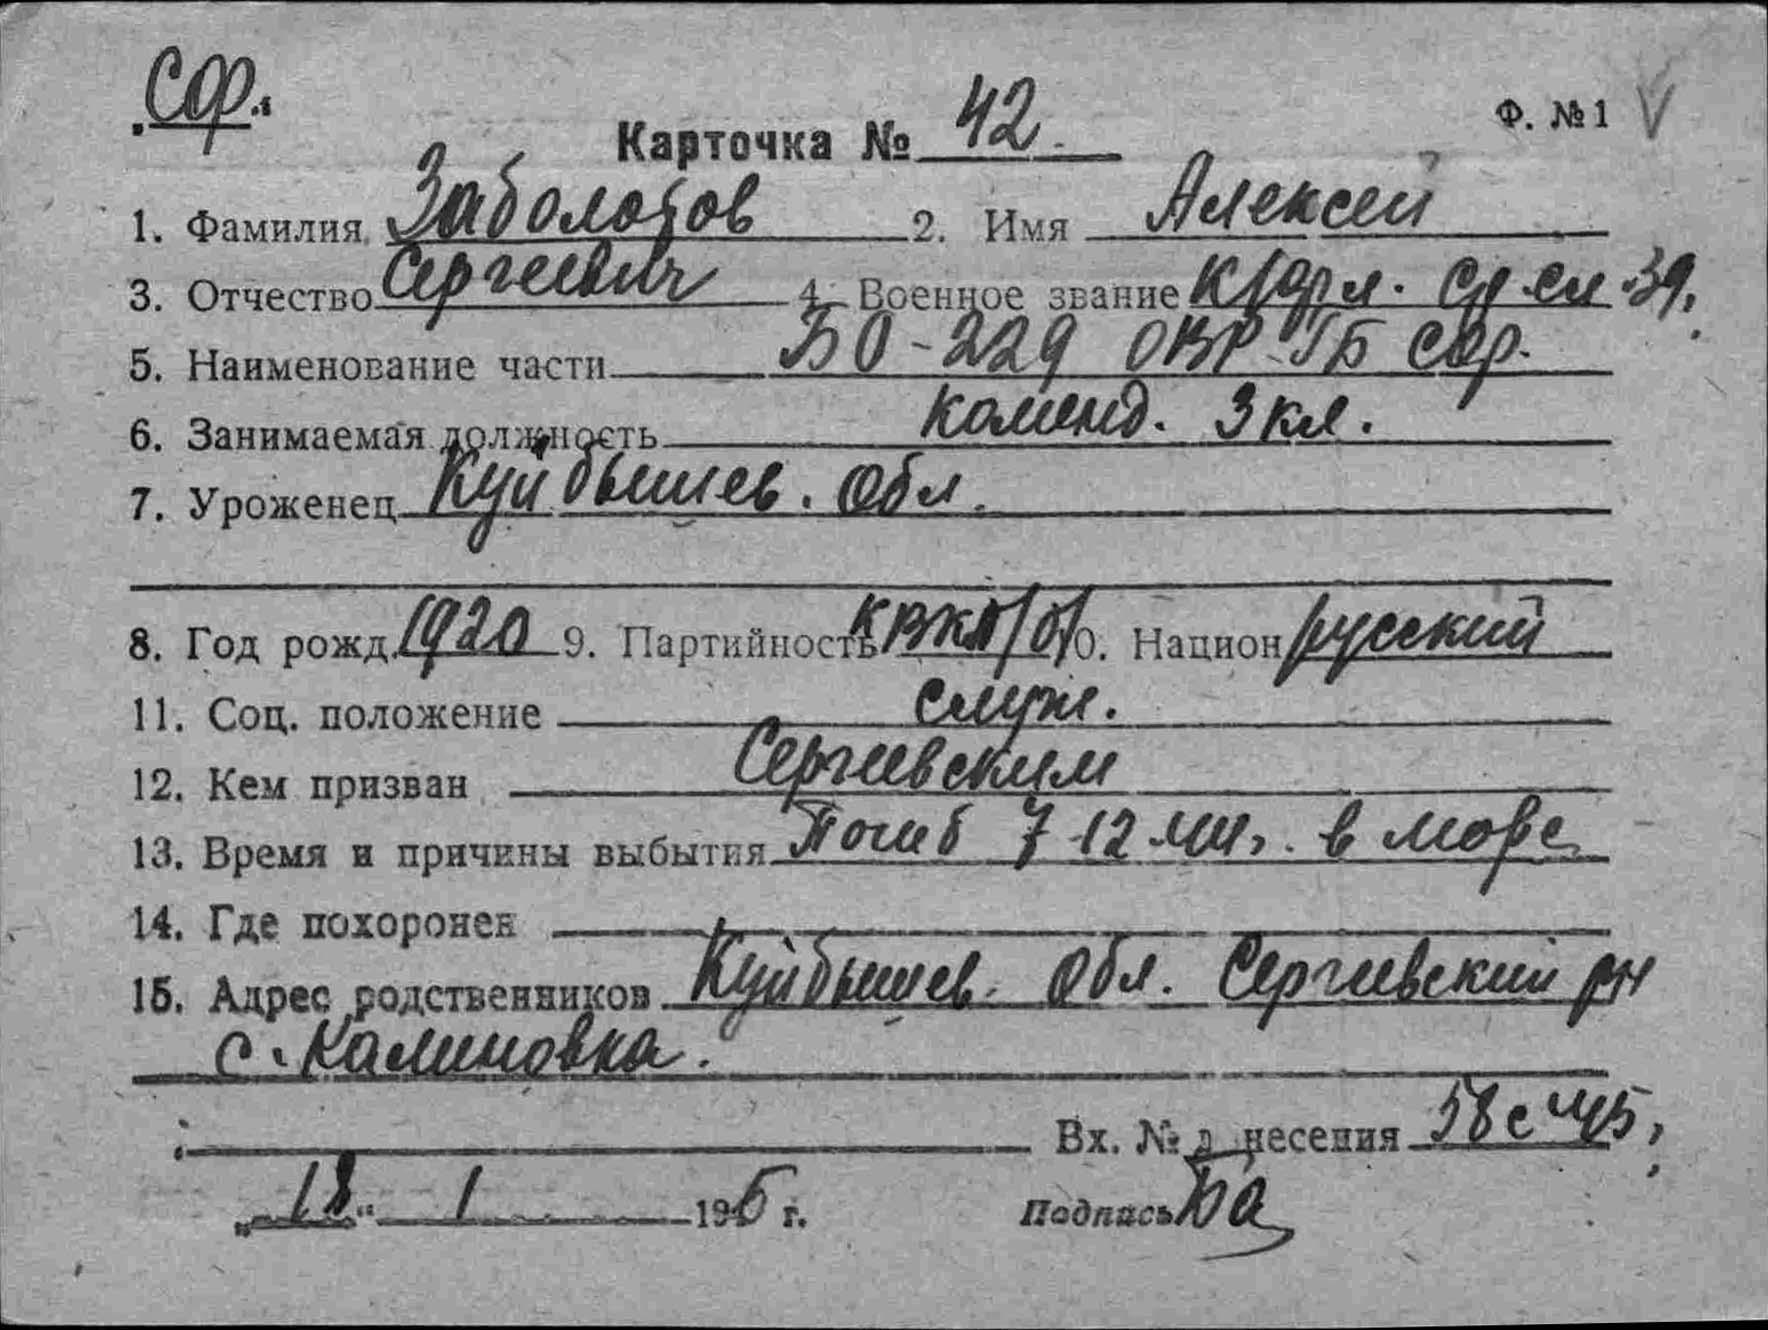 СФ.
Карточка № 42. Ф. № 1 V
1. Фамилия Заболотов 2. Имя Алексей
3. Отчество Сергеевич 4. Военное звание к/фл. ср. сл. 39.
5. Наименование части БО-229 ОВР ГБ СФ.
6. Занимаемая должность команд. 3 кл.
7. Уроженец Куйбышев. обл.
8. Год рожд. 1920 9. Партийность КВКП/б/ 10. Национ русский
11. Соц. положение служ.
12. Кем призван Сергиевским
13. Время и причины выбытия Погиб 7-12-44г. в море
14. Где похоронен
15. Адрес родственников Куйбышев. обл. Сергиевский рн
с. Калиновка.
Вх. № д несения 58с
„18" 1 1945 г. Подпись Ба